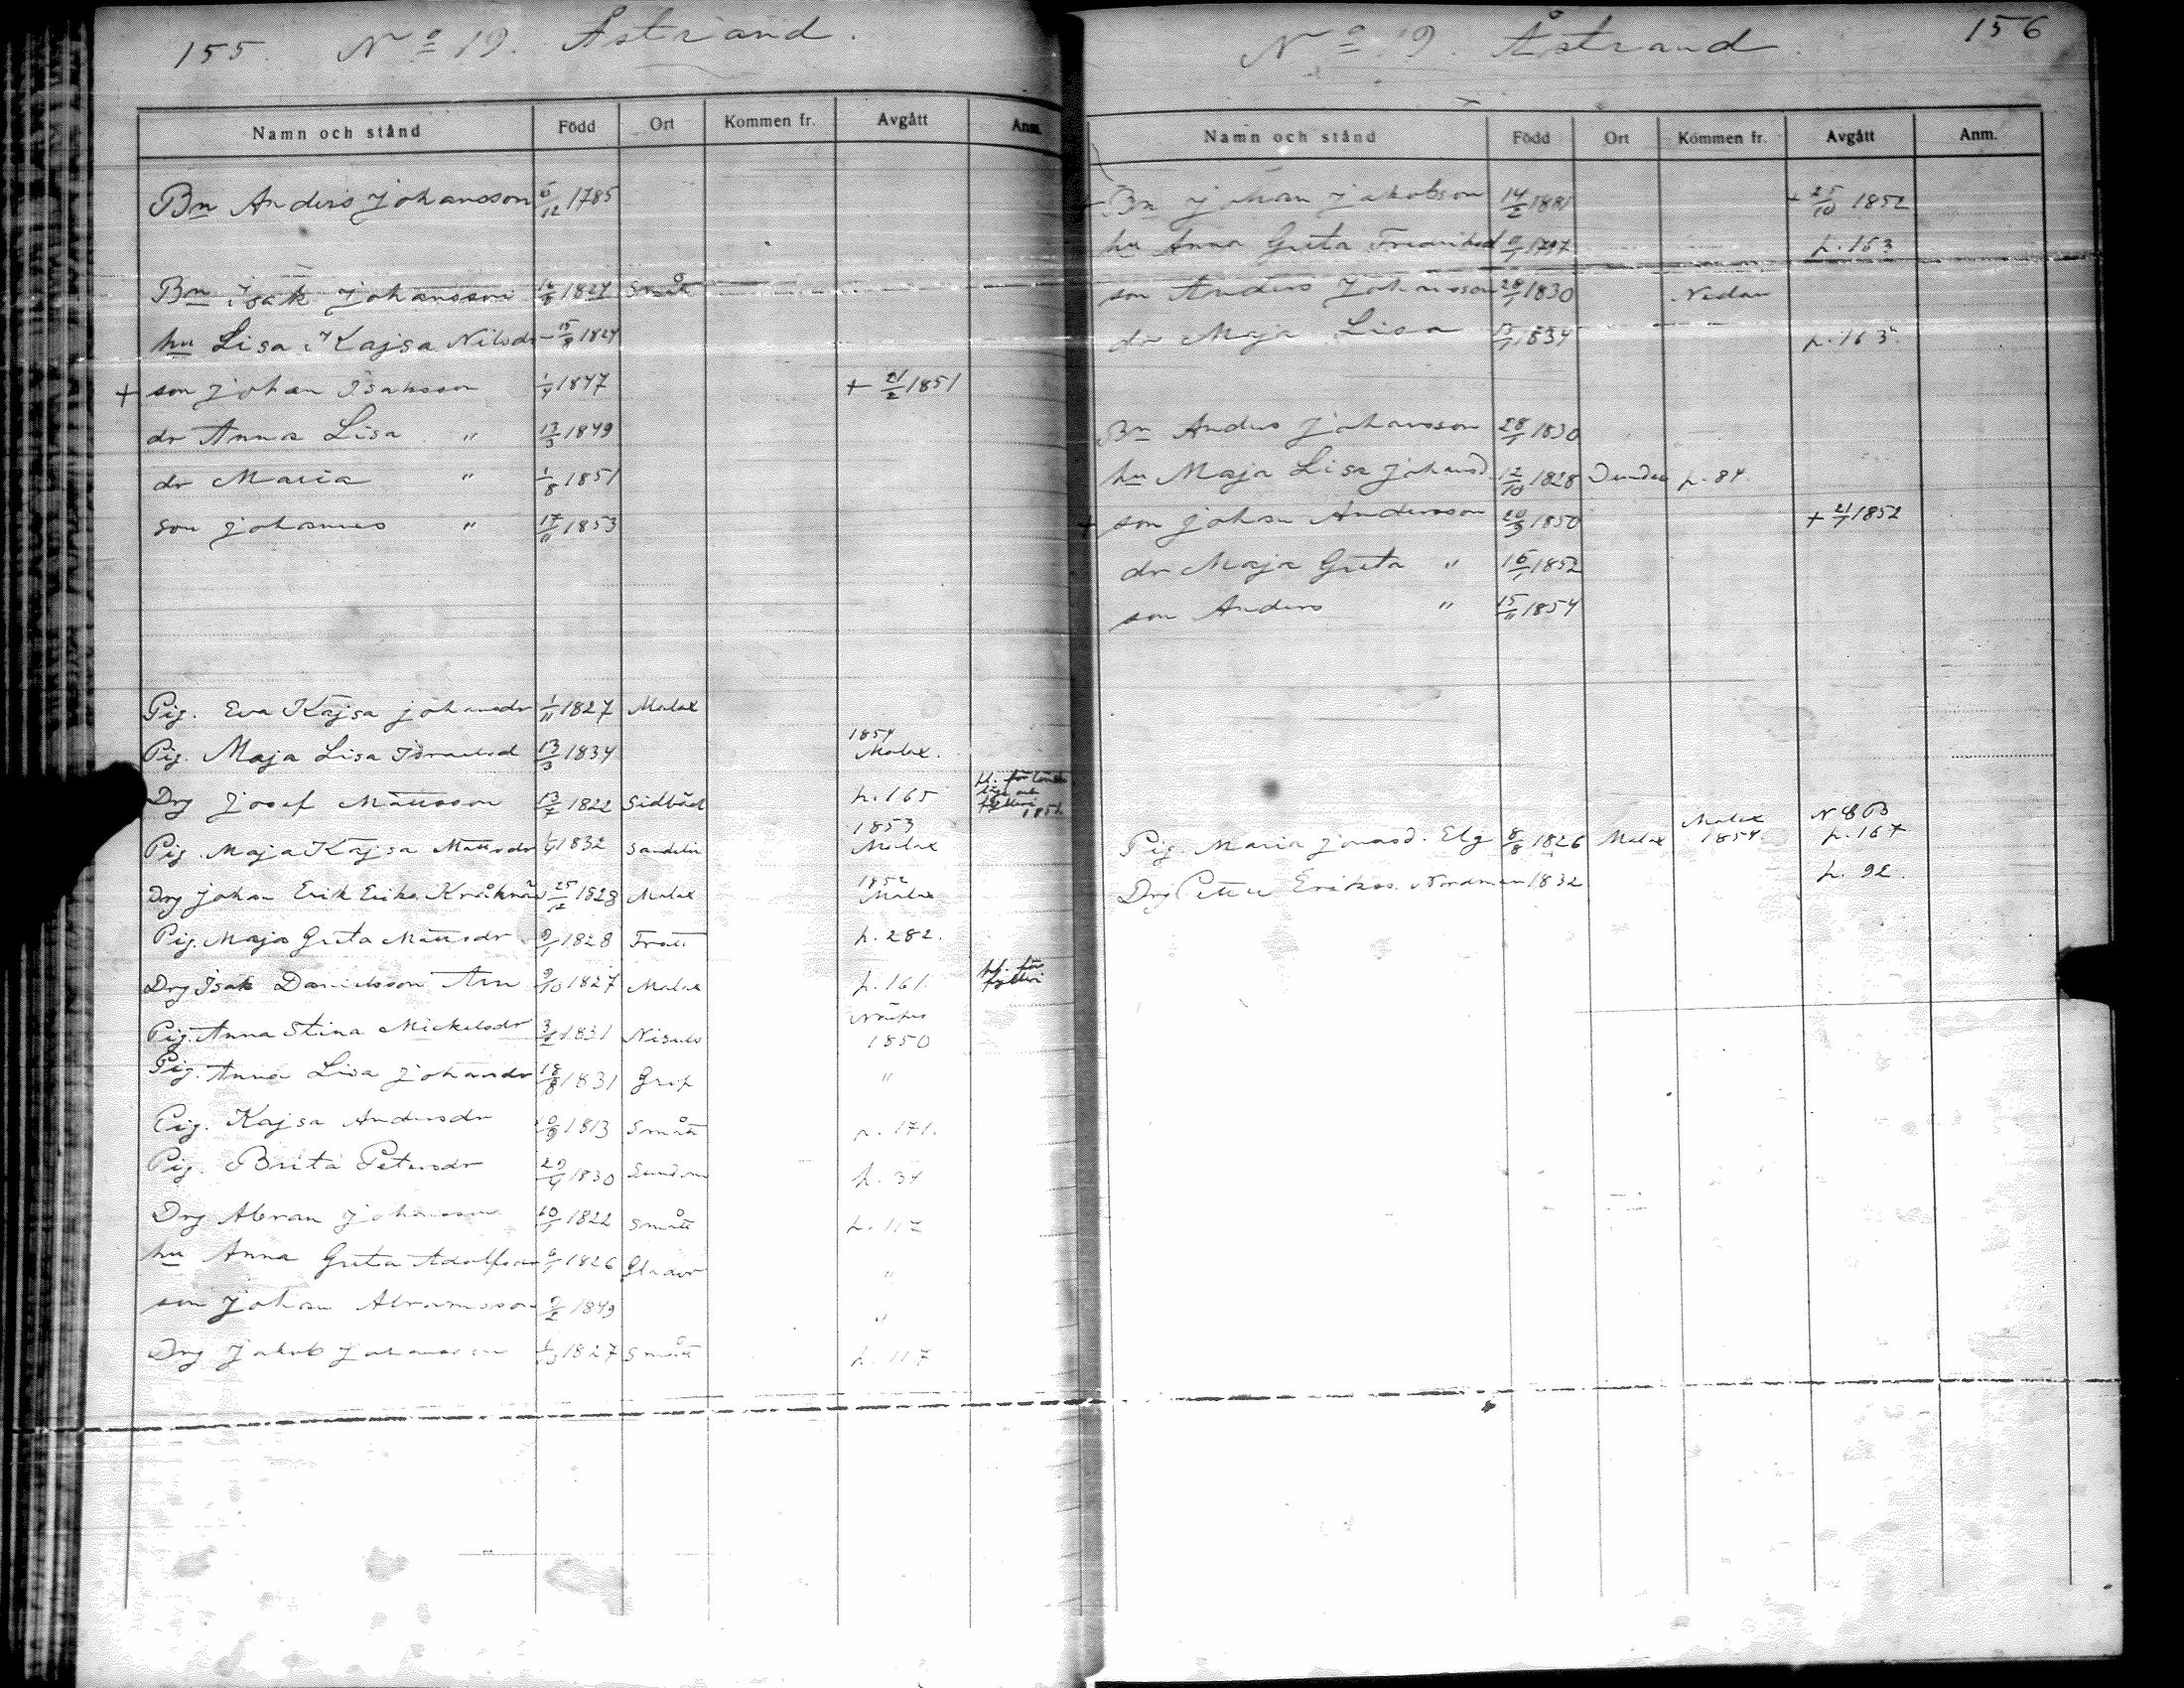 155. No 19. Åstrand.
Namn och stånd Född Ort Kommen fr. Avgått Anm.
Bn Anders Johansson 6/12 1785
Bn Isak Johansson 16/8 1827 Smått
hu Lisa Kajsa Nilsdr 15/9 1824
+ son Johan Isaksson 1/4 1847 + 21/2 1851
dr Anna Lisa " 13/3 1849
dr Maria " 1/8 1851
son Johannes " 17/11 1853
Pig. Eva Kajsa Johansdr 1/11 1827 Malax
Pig. Maja Lisa Israelsd 13/3 1834 1854 Malax.
Drg Josef Mattsson 13/7 1822 Sidbäck p. 165 1852
Pig. Maja Kajsa Mattsdr 1832 Sandelin 1853 Malax
Drg Johan Erik Eriks. Kråknäs 25/12 1828 Malax 1852 Malax
Pig. Maja Greta Mattsdr 9/1 1828 Fratt p. 282.
Drg Isak Danielsson Arn 9/10 1827 Malax p. 161. pl. för fylleri
Pig. Anna Stina Mickelsdr 3/2 1831 Nisuls Närpes 1850
Pig. Anna Lisa Johansdr 18/8 1831 Grip "
Pig. Kajsa Andersdr 20/9 1813 Smått p. 171.
Pig. Brita Petersdr 29/4 1830 Sundom p. 34
Drg Abram Johansson 20/1 1822 Smått p. 117
hu Anna Greta Adolfsdr 6/1 1826 "
son Johan Abramsson 9/2 1849 "
Drg Jakob Johansson 1827 Smått p. 117
No 19. Åstrand. 156
Namn och stånd Född Ort Kommen fr. Avgått Anm.
+ Bn Johan Jakobson 14/2 1801 + 25/10 1852
hu Anna Greta Fredriksd 1797 p. 163
son Anders Johansson 28/1 1830 Nedan
dr Maja Lisa 13/1 1834 p. 163.
Bn Anders Johansson 28/1 1830
hu Maja Lisa Johansd. 12/10 1828 Dunder p. 84
+ son Johan Andersson 20/9 1850 + 21/1 1852
dr Maja Greta " 16/1 1852
son Anders " 15/11 1854
Pig. Maria Jonasd. Elg 8/8 1826 Malax Malax 1854. N&B p. 167
Drg Petter Eriks. Nordman 1832 p. 92.